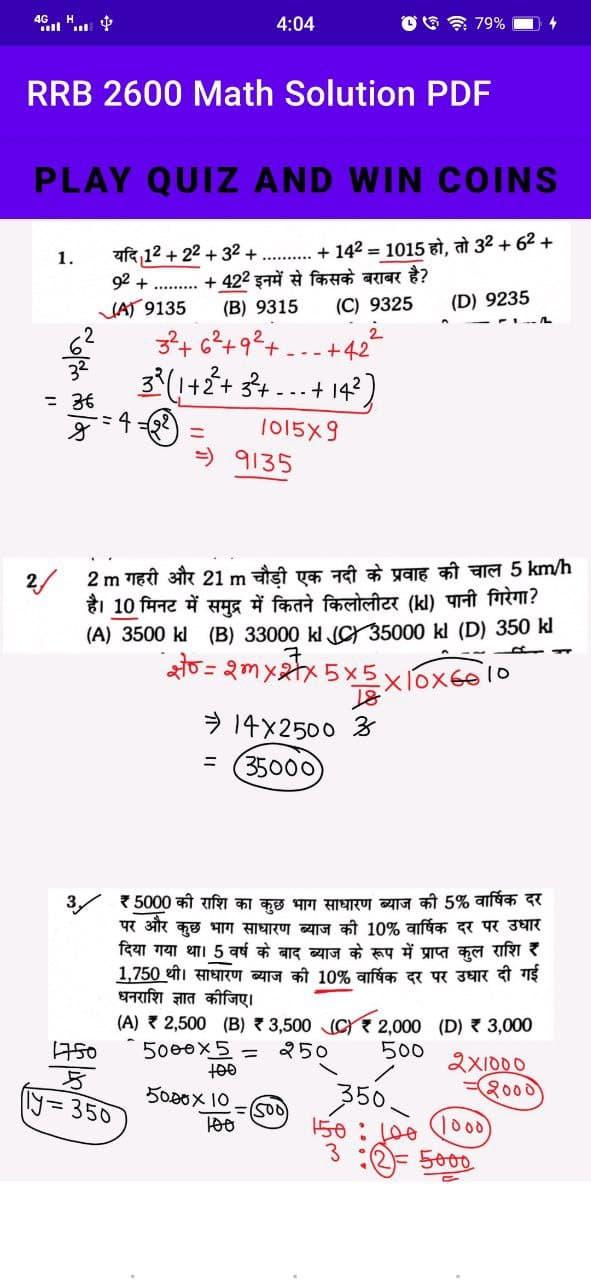 4G H 4:04 79%
RRB 2600 Math Solution PDF
PLAY QUIZ AND WIN COINS
1. यदि 1² + 2² + 3² + .......... + 14² = 1015 हो, तो 3² + 6² +
9² + ......... + 42² इनमें से किसके बराबर है?
(A) 9135 (B) 9315 (C) 9325 (D) 9235
6²
3²
= 36
9
= 4 = 2²
3² + 6² + 9² + --- + 42²
3²(1 + 2² + 3² + --- + 14²)
= 1015 × 9
⇒ 9135
2 2 m गहरी और 21 m चौड़ी एक नदी के प्रवाह की चाल 5 km/h
है। 10 मिनट में समुद्र में कितने किलोलीटर (kl) पानी गिरेगा?
(A) 3500 kl (B) 33000 kl (C) 35000 kl (D) 350 kl
7
= 2m × 21 × 5 × 5 × 10 × 60 10
18
⇒ 14 × 2500 3
= 35000
3 ₹ 5000 की राशि का कुछ भाग साधारण ब्याज की 5% वार्षिक दर
पर और कुछ भाग साधारण ब्याज की 10% वार्षिक दर पर उधार
दिया गया था। 5 वर्ष के बाद ब्याज के रूप में प्राप्त कुल राशि ₹
1,750 थी। साधारण ब्याज की 10% वार्षिक दर पर उधार दी गई
धनराशि ज्ञात कीजिए।
(A) ₹ 2,500 (B) ₹ 3,500 (C) ₹ 2,000 (D) ₹ 3,000
1750
5
1y = 350
5000 × 5 = 250 500
100
5000 × 10 = 500
100
350
150 : 100 1000
3 : 2 = 5000
5
2×1000
= 2000